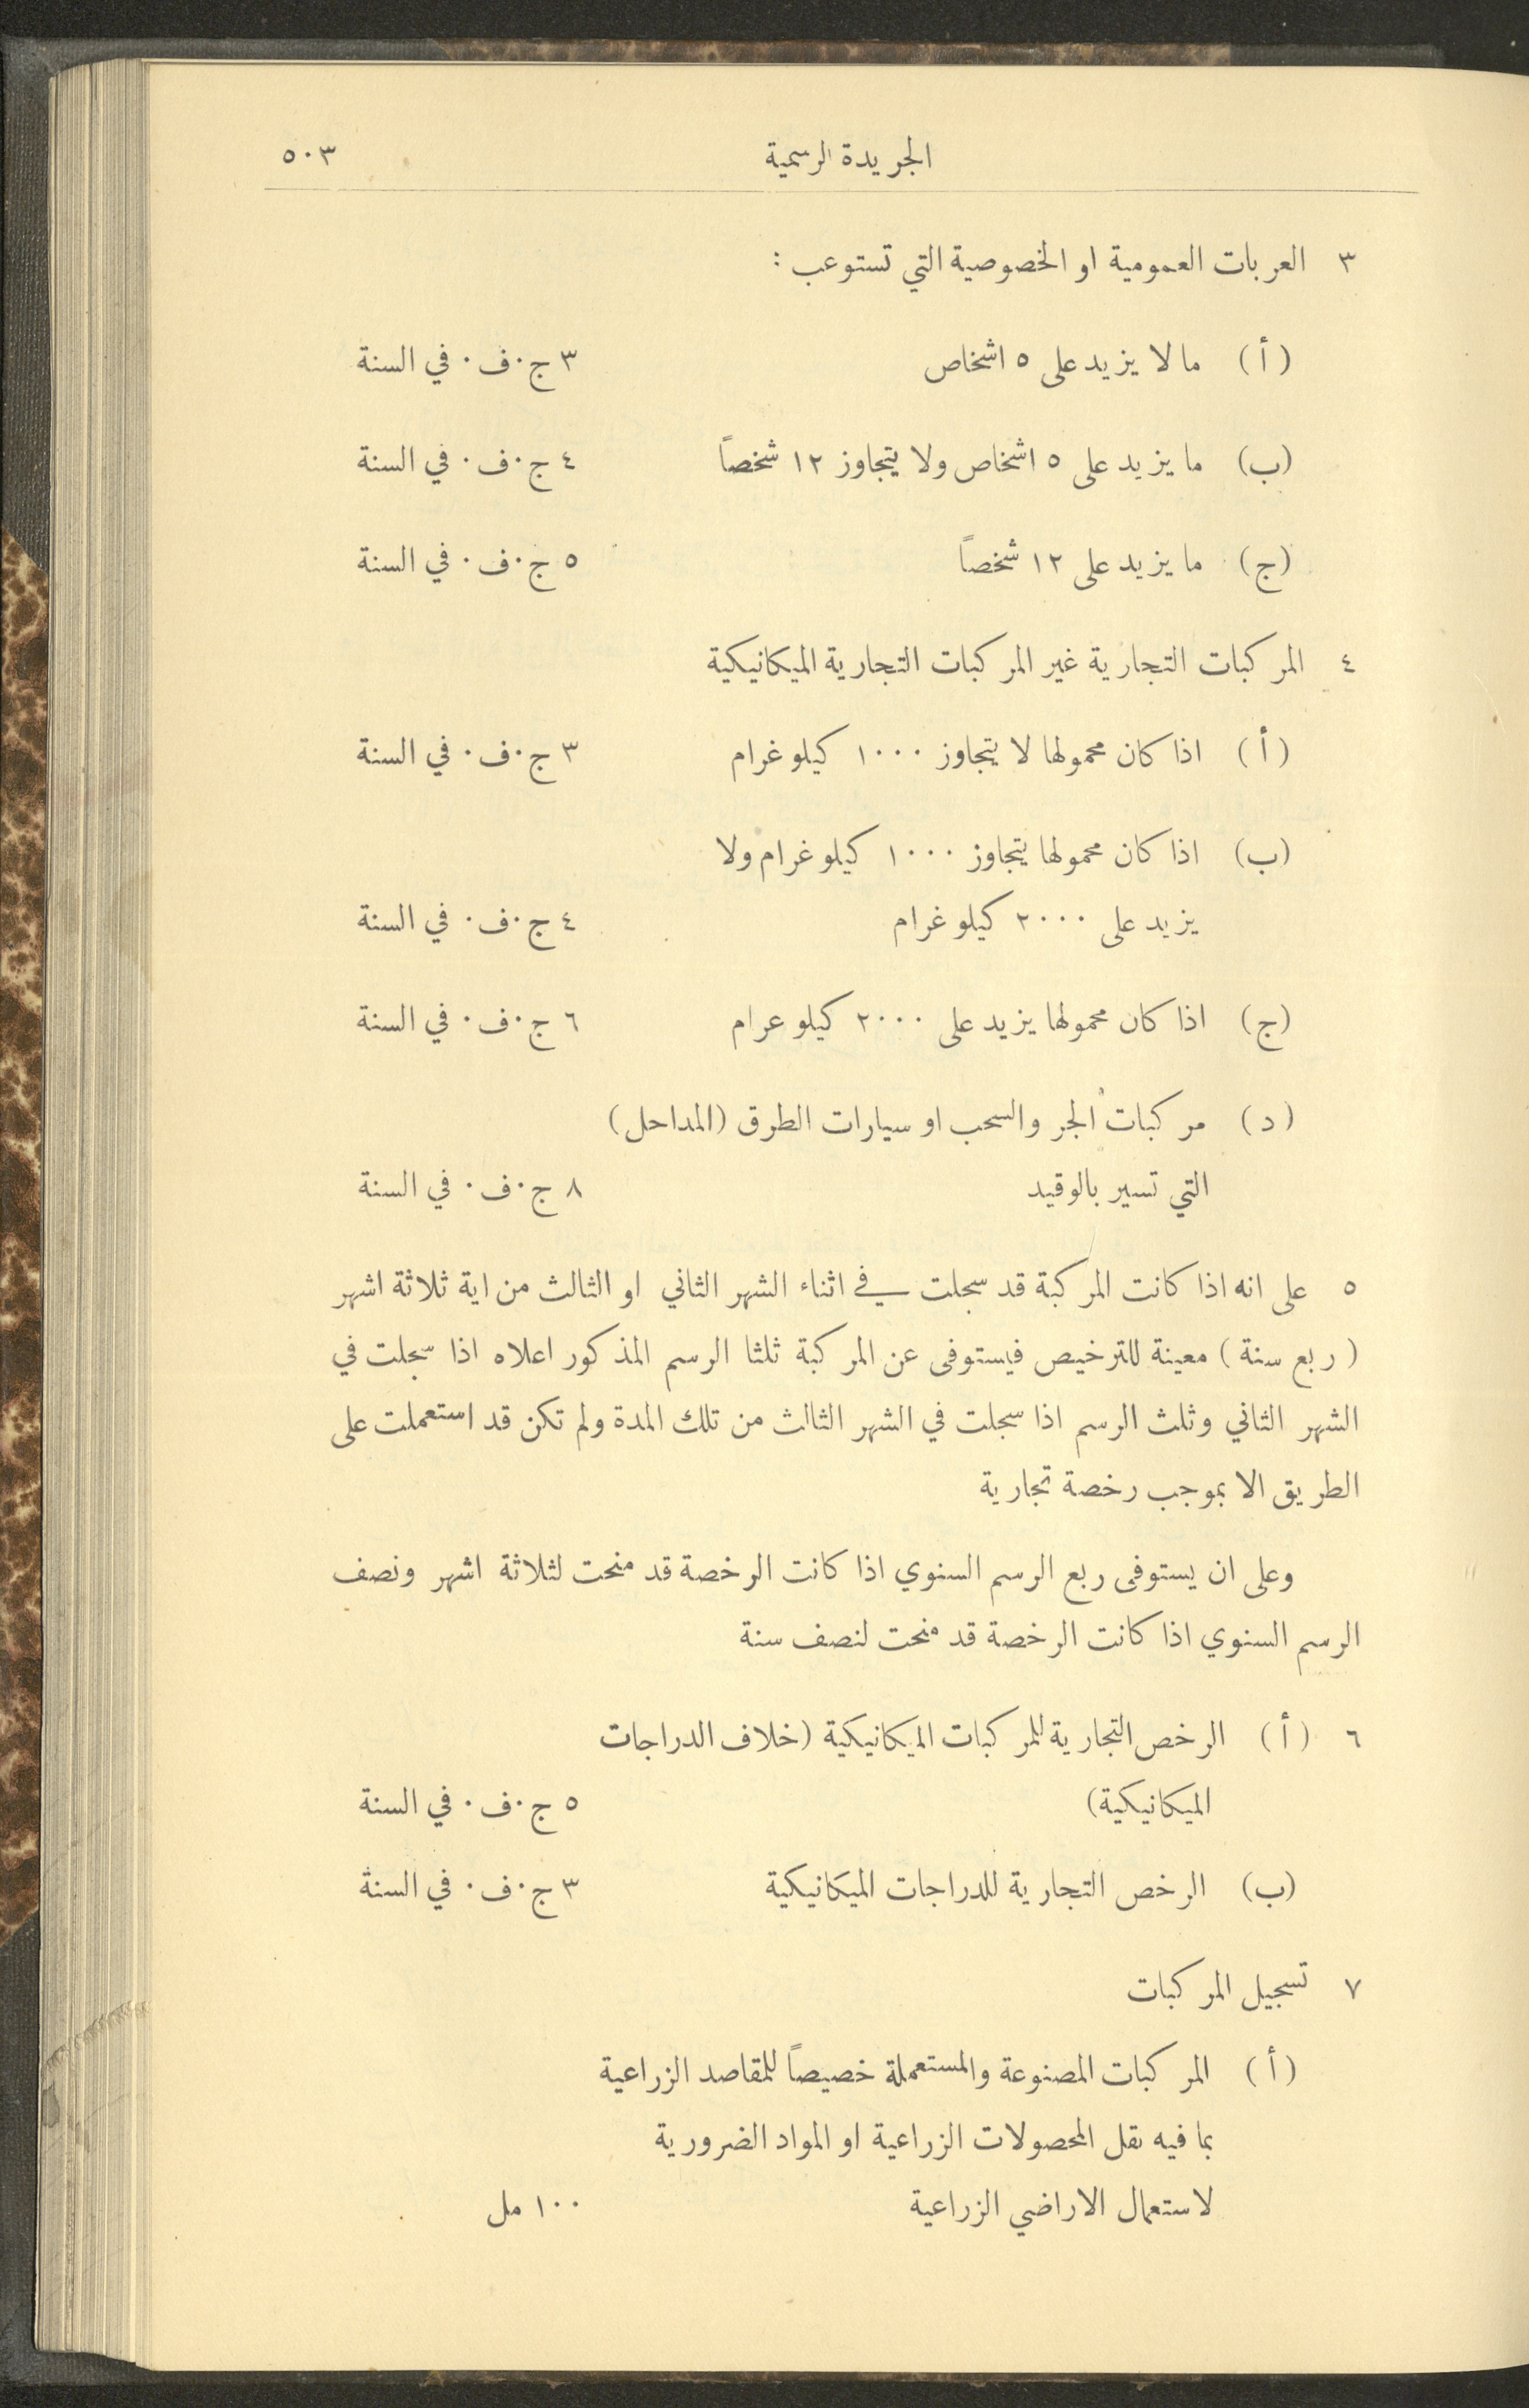 الجريدة الرسمية ٥٠٣
٣ العربات العمومية او الخصوصية التي تستوعب :
(أ) ما لا يزيد على ٥ اشخاص ٣ ج.ف. في السنة
(ب) ما يزيد على ٥ اشخاص ولا يتجاوز ١٢ شخصاً ٤ ج.ف. في السنة
(ج) ما يزيد على ١٢ شخصاً ٥ ج.ف. في السنة
٤ المركبات التجارية غير المركبات التجارية الميكانيكية
(أ) اذا كان محمولها لا يتجاوز ١٠٠٠ كيلو غرام ٣ ج.ف. في السنة
(ب) اذا كان محمولها يتجاوز ١٠٠٠ كيلو غرام ولا
يزيد على ٢٠٠٠ كيلو غرام ٤ ج.ف. في السنة
(ج) اذا كان محمولها يزيد على ٢٠٠٠ كيلو عرام ٦ ج.ف. في السنة
(د) مركبات الجر والسحب او سيارات الطرق (المداحل)
التي تسير بالوقيد ٨ ج.ف. في السنة
٥ على انه اذا كانت المركبة قد سجلت في اثناء الشهر الثاني او الثالث من اية ثلاثة اشهر
(ربع سنة) معينة للترخيص فيستوفى عن المركبة ثلثا الرسم المذكور اعلاه اذا سجلت في
الشهر الثاني وثلث الرسم اذا سجلت في الشهر الثالث من تلك المدة ولم تكن قد استعملت على
الطريق الا بموجب رخصة تجارية
وعلى ان يستوفى ربع الرسم السنوي اذا كانت الرخصة قد منحت لثلاثة اشهر ونصف
الرسم السنوي اذا كانت الرخصة قد منحت لنصف سنة
٦ (أ) الرخص التجارية للمركبات الميكانيكية (خلاف الدراجات
الميكانيكية) ٥ ج.ف. في السنة
(ب) الرخص التجارية للدراجات الميكانيكية ٣ ج.ف. في السنة
٧ تسجيل المركبات
(أ) المركبات المصنوعة والمستعملة خصيصاً للمقاصد الزراعية
بما فيه نقل المحصولات الزراعية او المواد الضرورية
لاستعمال الاراضي الزراعية ١٠٠ مل